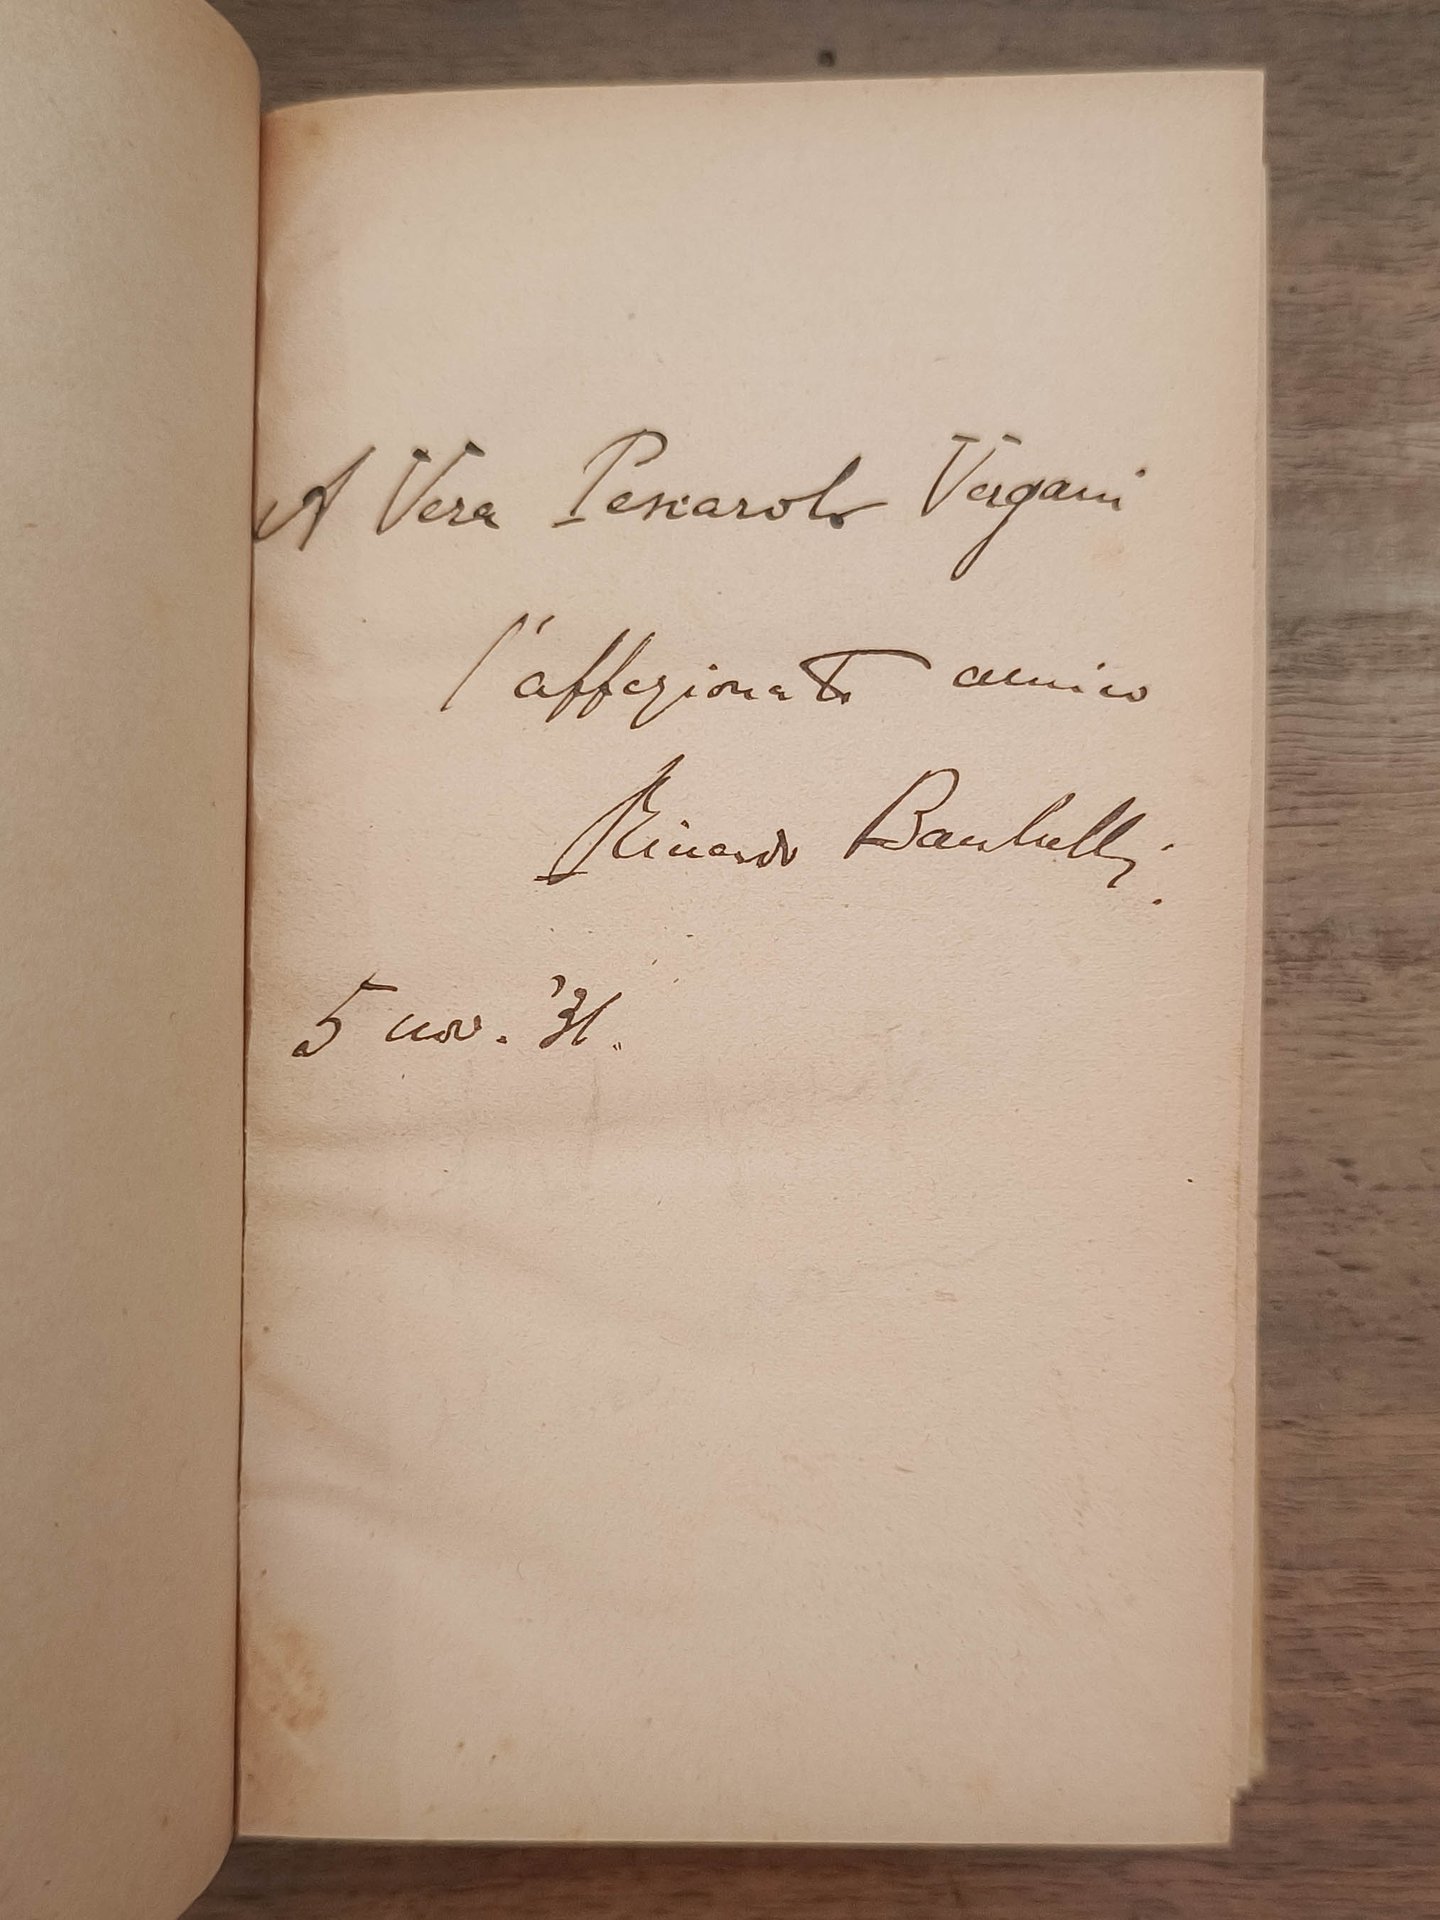 A Vera Pescarolo Vergani
l'affezionato amico
Riccardo Bacchelli.
5 nov. '31.